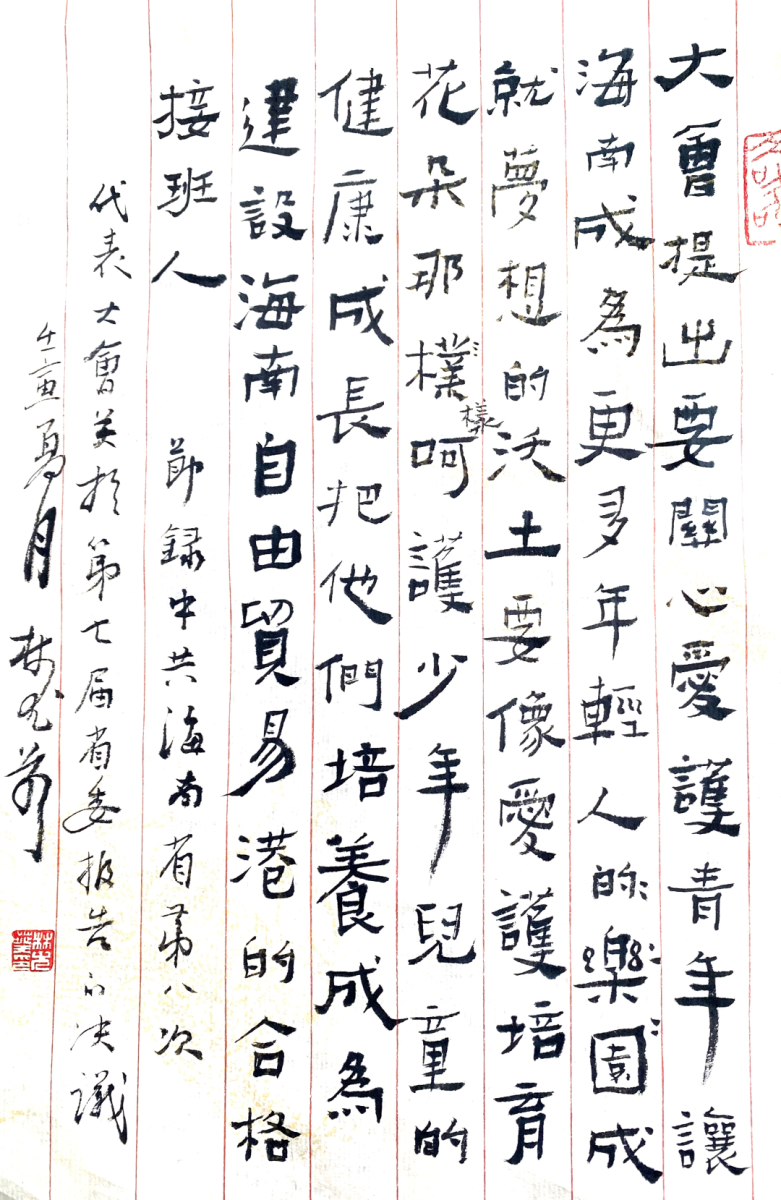 大會提出要關心愛護青年讓
海南成為更多年輕人的樂園成
就夢想的沃土要像愛護培育
花朵那樸呵護少年兒童的
樣
健康成長把他們培養成為
建設海南自由貿易港的合格
接班人
節録中共海南省第八次
代表大會关於第七届省委报告的决議
壬寅夏月